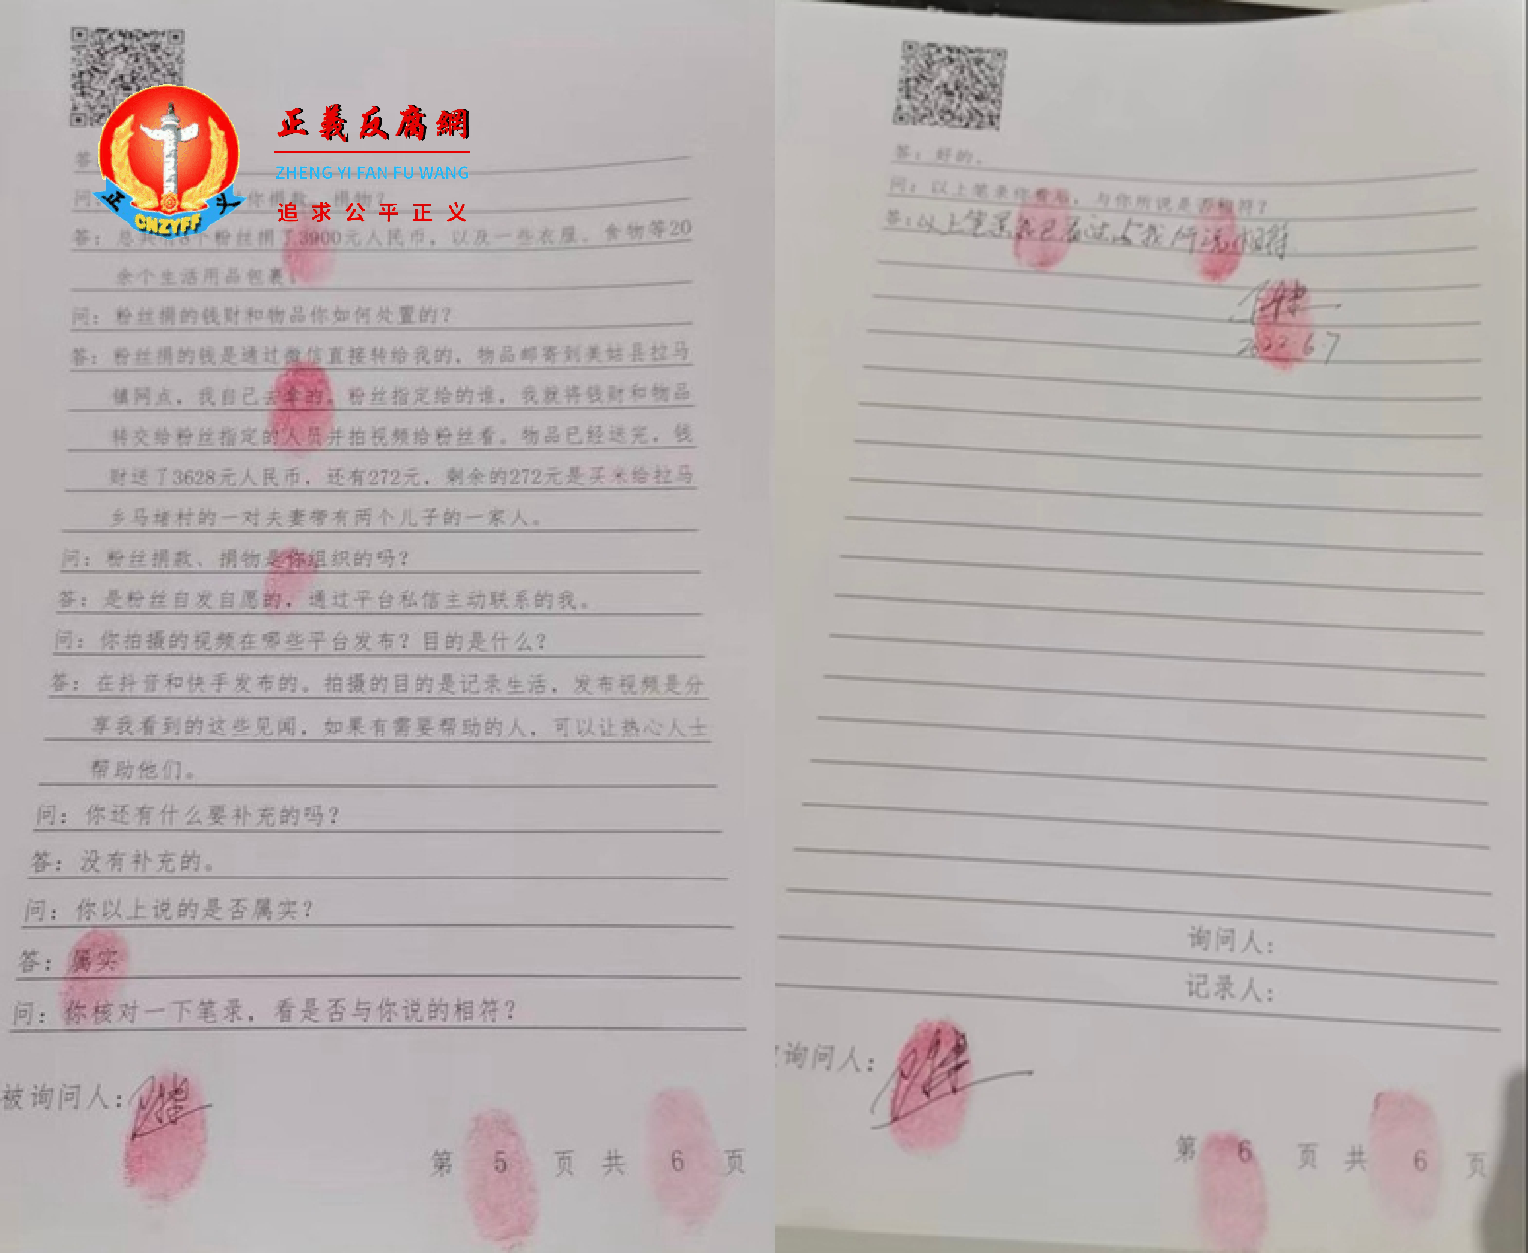 正義反腐網
ZHENG YI FAN FU WANG
追求公平正义
正 义
CNZYFF
答:
问: 你捐款、捐物?
答: 总共有8个粉丝捐了3900元人民币, 以及一些衣服、食物等20
余个生活用品包裹。
问: 粉丝捐的钱财和物品你如何处置的?
答: 粉丝捐的钱是通过微信直接转给我的, 物品邮寄到美姑县拉马
镇网点, 我自己去拿的。粉丝指定给的谁, 我就将钱财和物品
转交给粉丝指定的人员并拍视频给粉丝看。物品已经送完, 钱
财送了3628元人民币, 还有272元, 剩余的272元是买米给拉马
乡马堵村的一对夫妻带有两个儿子的一家人。
问: 粉丝捐款、捐物是你组织的吗?
答: 是粉丝自发自愿的, 通过平台私信主动联系的我。
问: 你拍摄的视频在哪些平台发布? 目的是什么?
答: 在抖音和快手发布的。拍摄的目的是记录生活, 发布视频是分
享我看到的这些见闻, 如果有需要帮助的人, 可以让热心人士
帮助他们。
问: 你还有什么要补充的吗?
答: 没有补充的。
问: 你以上说的是否属实?
答: 属实
问: 你核对一下笔录, 看是否与你说的相符?
被询问人:
第 5 页 共 6 页
答: 好的。
问: 以上笔录你看后, 与你所说是否相符?
答: 以上笔录我已看过与我所说相符
2022.6.7
询问人:
记录人:
询问人:
第 6 页 共 6 页